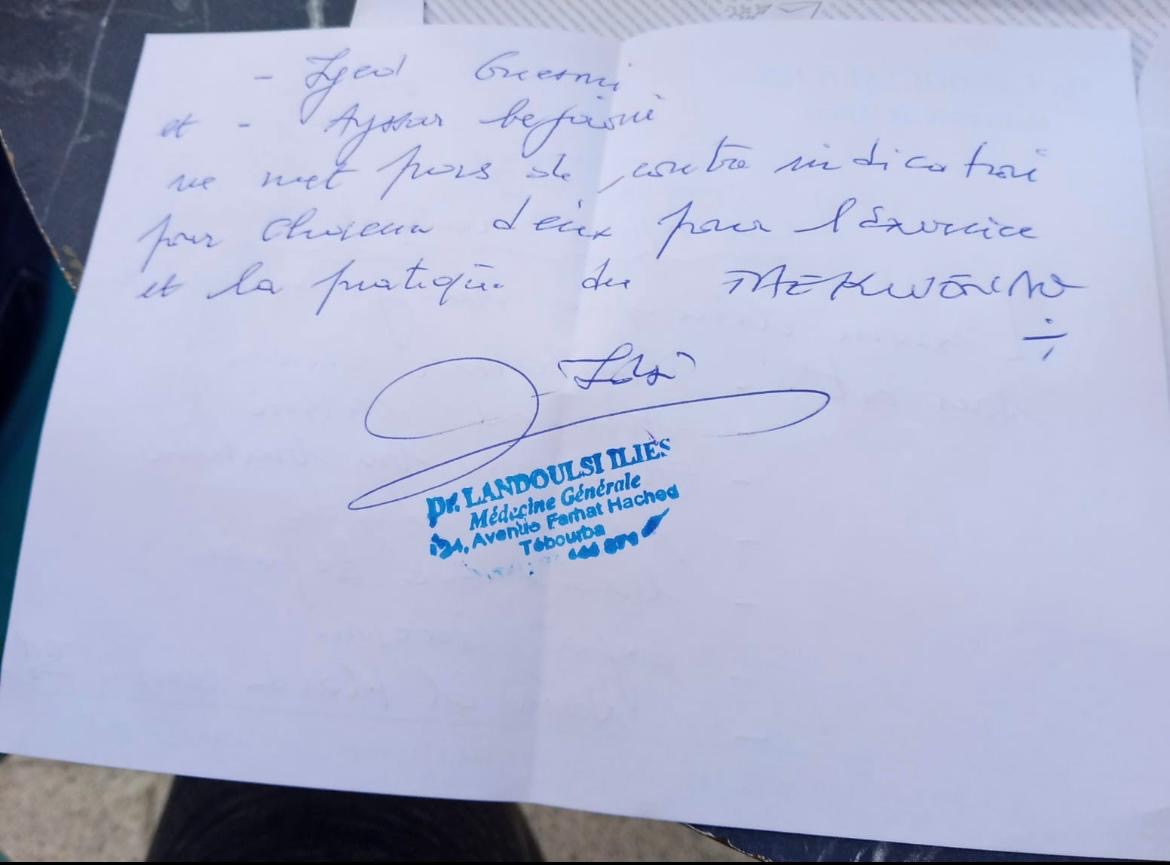 - Iyed Guesmi
et - Ayssar bejaoui
ne met pas de contre indication
pour chacun d'eux pour l'éxercice
et la pratique du TAEKWONDO
Dr. LANDOULSI ILIÈS
Médecine Générale
124, Avenue Ferhat Hached
Tébourba